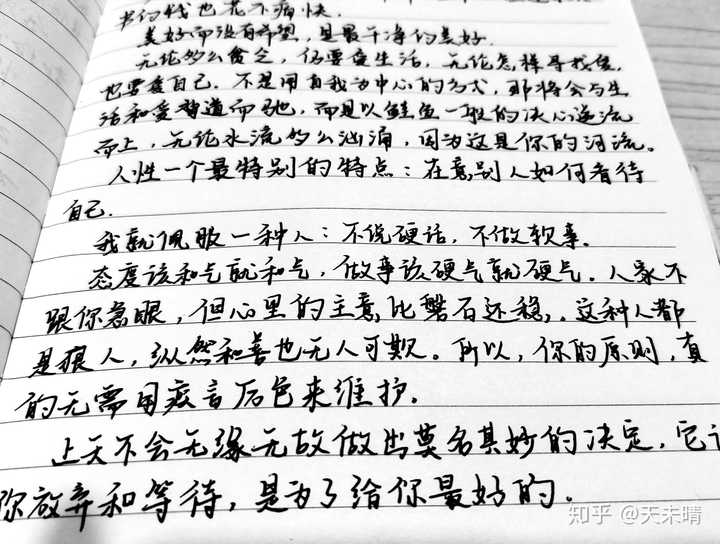 书的钱也花不痛快.
美好而没有希望, 是最干净的美好.
无论多么贫乏, 仍要爱生活, 无论怎样寻找爱,
也要爱自己. 不是用自我为中心的方式, 那将会与生
活和爱背道而驰, 而是以鲑鱼一般的决心逆流
而上, 无论水流多么汹涌, 因为这是你的河流。
人性一个最特别的特点: 在意别人如何看待
自己.
我就佩服一种人: 不说硬话, 不做软事.
态度该和气就和气, 做事该硬气就硬气. 人家不
跟你急眼, 但心里的主意比磐石还稳,. 这种人都
是狠人, 纵然和善也无人可欺。所以, 你的原则, 真
的无需用疾言厉色来维护.
上天不会无缘无故做出莫名其妙的决定, 它让
你放弃和等待, 是为了给你最好的。
知乎 @天未晴